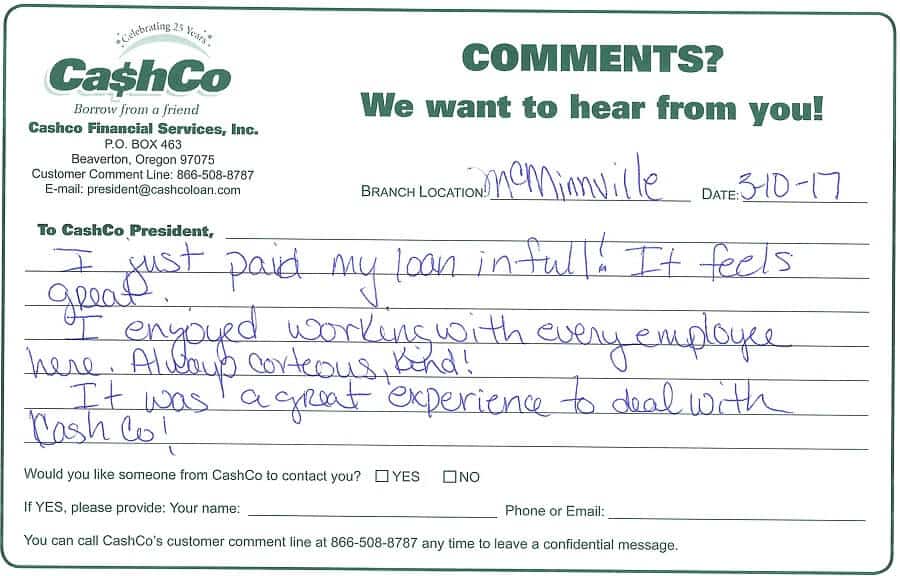 *Celebrating 25 Years*
Ca$hCo
Borrow from a friend
Cashco Financial Services, Inc.
P.O. BOX 463
Beaverton, Oregon 97075
Customer Comment Line: 866-508-8787
E-mail: president@cashcoloan.com
COMMENTS?
We want to hear from you!
BRANCH LOCATION: McMinnville DATE: 3-10-17
To CashCo President,
I just paid my loan in full! It feels
great.
I enjoyed working with every employee
here. Always corteous, kind!
It was a great experience to deal with
Cash Co!
Would you like someone from CashCo to contact you? ☐ YES ☐ NO
If YES, please provide: Your name: Phone or Email:
You can call CashCo's customer comment line at 866-508-8787 any time to leave a confidential message.